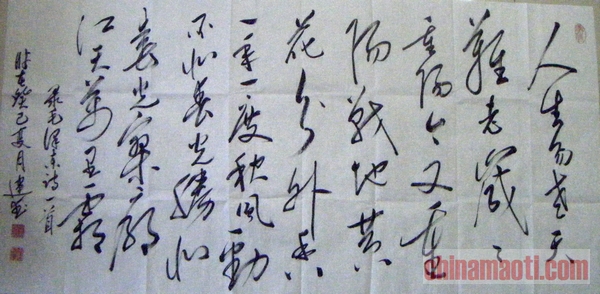 人生易老天
難老歲々
重陽今又重
陽戰地黄
花分外香
一年一度秋风勁
不似春光勝似
春光寥廓
江天萬里霜
录毛泽东诗一首
时在癸巳夏月建
chinamaoti.com